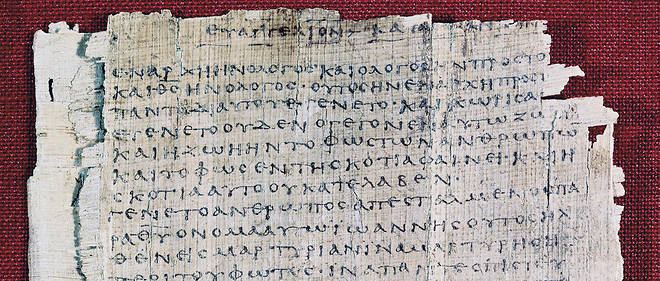 ΕΥΑΓΓΕΛΙΟΝ ΚΑΤΑ
ΕΝΑΡΧΗΗΝΟΛΟΓΟϹΚΑΙΟΛΟΓΟϹΗΝΠΡΟϹΤΟ
ΚΑΙΘϹΗΝΟΛΟΓΟϹ·ΟΥΤΟϹΗΝΕΝΑΡΧΗΠΡΟϹΤ
ΠΑΝΤΑΔΙΑΥΤΟΥΕΓΕΝΕΤΟ·ΚΑΙΧΩΡΙϹΑ
ΕΓΕΝΕΤΟΟΥΔΕΝΟΓΕΓΟΝΕΝΑΥΤΩΖΩ
ΚΑΙΗΖΩΗΗΝΤΟΦΩϹΤΩΝΑΝΘΡΩΠΩ
ΚΑΙΤΟΦΩϹΕΝΤΗϹΚΟΤΙΑΦΑΙΝΕΙ·ΚΑΙΗ
ϹΚΟΤΙΑΑΥΤΟΟΥΚΑΤΕΛΑΒΕΝ·
ΓΕΝΕΤΟΑΝΘΡΩΠΟϹΑΠΕϹΤΑΛΜΕΝΟϹΠΑ
ΡΑΘΥΟΝΟΜΑΑΥΤΩΙΩΑΝΝΗϹΟΥΤΟϹΗΛ
ΘΕΝΕΙϹΜΑΡΤΥΡΙΑΝΙΝΑΜΑΡΤΥΡΗϹΗ
ΠΕΡΙΤΟΥΦΩΤΟϹ·ΙΝΑΠΑΝΤΕϹΠΙϹΤΕΥ